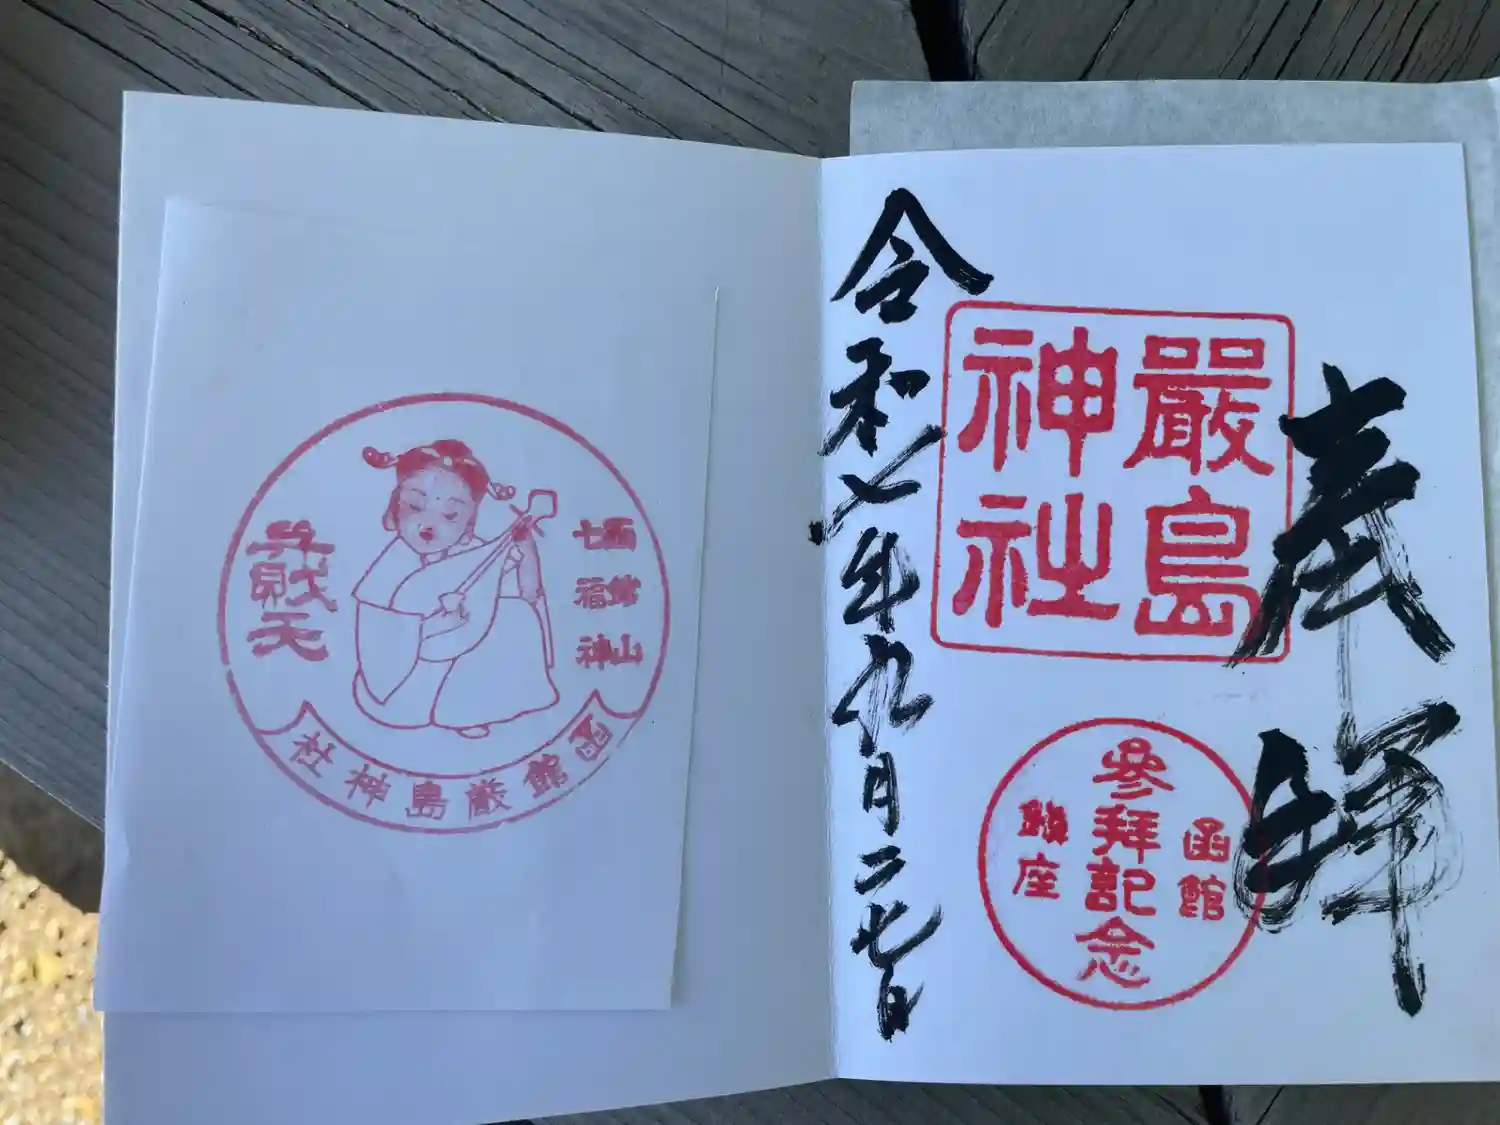 奉拝
嚴島
神社
函館
參拜記念
鎮座
令和七年九月二七日
函館山
七福神
弁財天
函館厳島神社